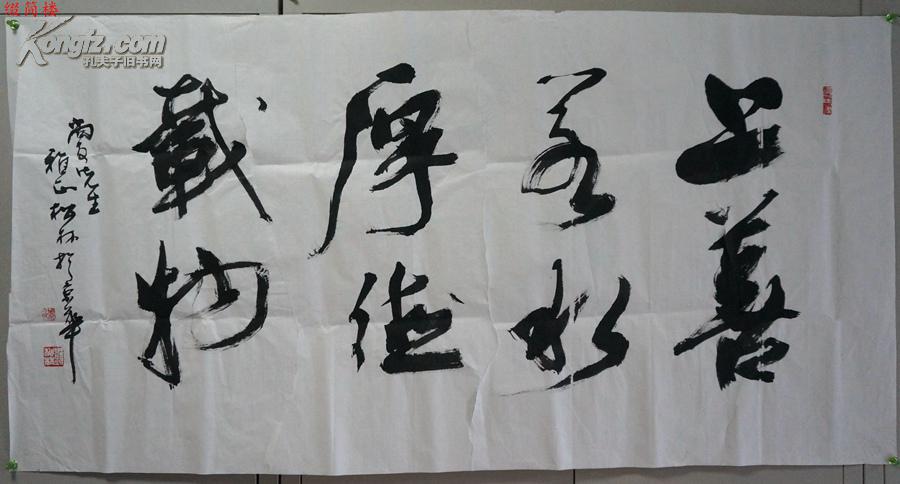 缀简楼
Kongfz.com
孔夫子旧书网
上善
若水
厚德
载物
先生
雅正 松林于京华